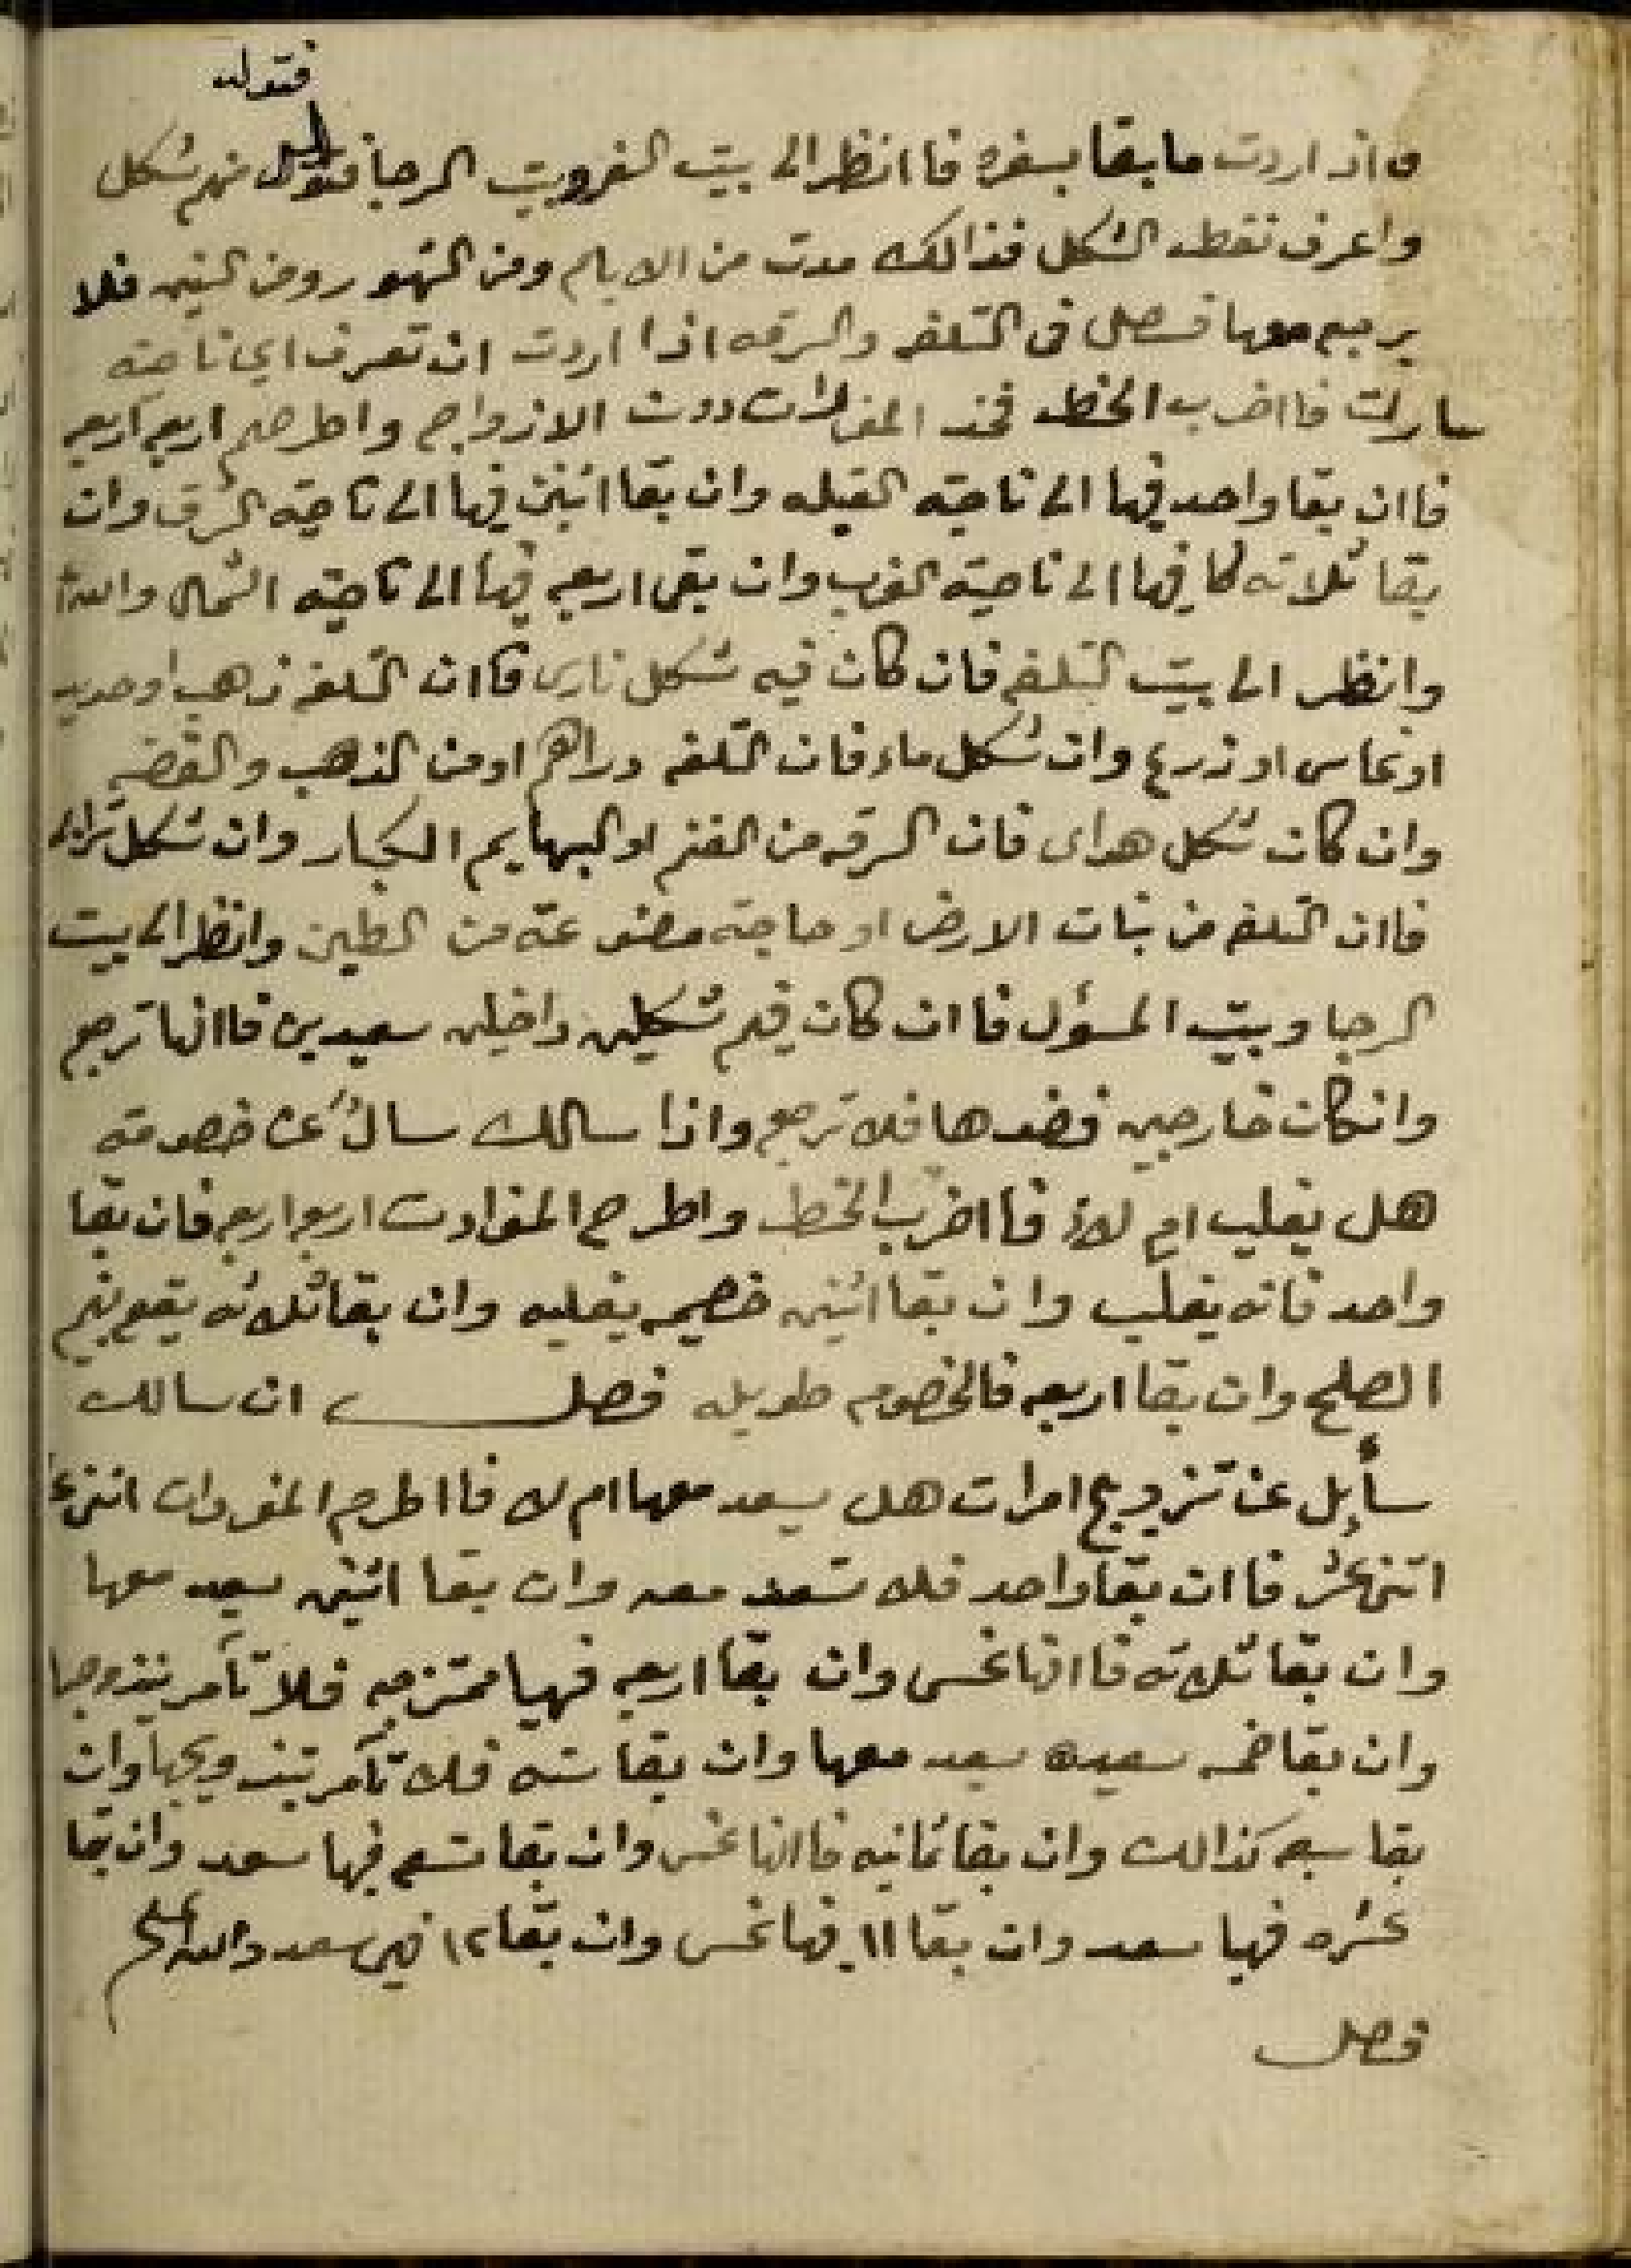 فتولد
و اذ اردت ما بقا بسفره فا انظر الى بيت السفر وبيت الرجا منهم شكل
واعرف نقط الشكل فذالكه مدت من الايام ومن الشهور ومن السنين فلا
يرجع معها فصل فى التلفه والسرقه اذا اردت ان تعرف اي ناحيته
سارلت فا اضرب الخط فخذ المفرادات دون الازواج واطرحهم اربعه اربعه
فا ان بقا واحد فيها الى ناحيته القبله وان بقا اثنين فيها الى ناحيته الشرق وان
بقا ثلاته فيها الى ناحيته الغرب وان بقى اربعه فيها الى ناحيته الشمال والله
وانظر الى بيت التلفه فان كان فيه شكل نارى فا ان التلفه ذهب او حديد
او نحاس او زرع وان شكل ماء فان التلفه دراهم او من الذهب والفضه
وان كان شكل هواى فان السرقه من الغنم او البهايم الكبار وان شكل ترابى
فا ان التلفه من نبات الارض او حاجته مصنوعته من الطين وانظر الى بيت
الرجا وبيت المسؤل فا ان كان فيهم شكلين داخلين سعيدين فا انها ترجع
وان كان خارجين فضدها فلا ترجع واذا سالك سال عن خصومته
هل يغلب ام لا فا اضرب الخط واطرح المفرادت اربعه اربعه فان بقا
واحد فانه يغلب وان بقا اثنين خصيمه يغلبه وان بقا ثلاثه يقع بينهم
الصلح وان بقا اربعه فالخصومه طويله فصل ان سالك
سأيل عن تزويج امرات هل يسعد معها ام لا فا اطرح المفردات اثنى
اتنى عشر فا ان بقا واحد فلا تسعد معه وان بقا اثنين سعيد معها
وان بقا ثلاته فا انها نحس وان بقا اربعه فهيا ممتزجه فلا تأمر بتزوجها
وان بقا خمسه سعيده يسعد معها وان بقا سته فلا تأمر بتزويجها وان
بقا سبعه كذالك وان بقا ثمانيه فا انها نحس وان بقا تسعه فيها سعد وان بقا
عشره فهيا سعد وان بقا ١١ فيها نحس وان بقا ١٢ فهى سعد والله اعلم
فصل